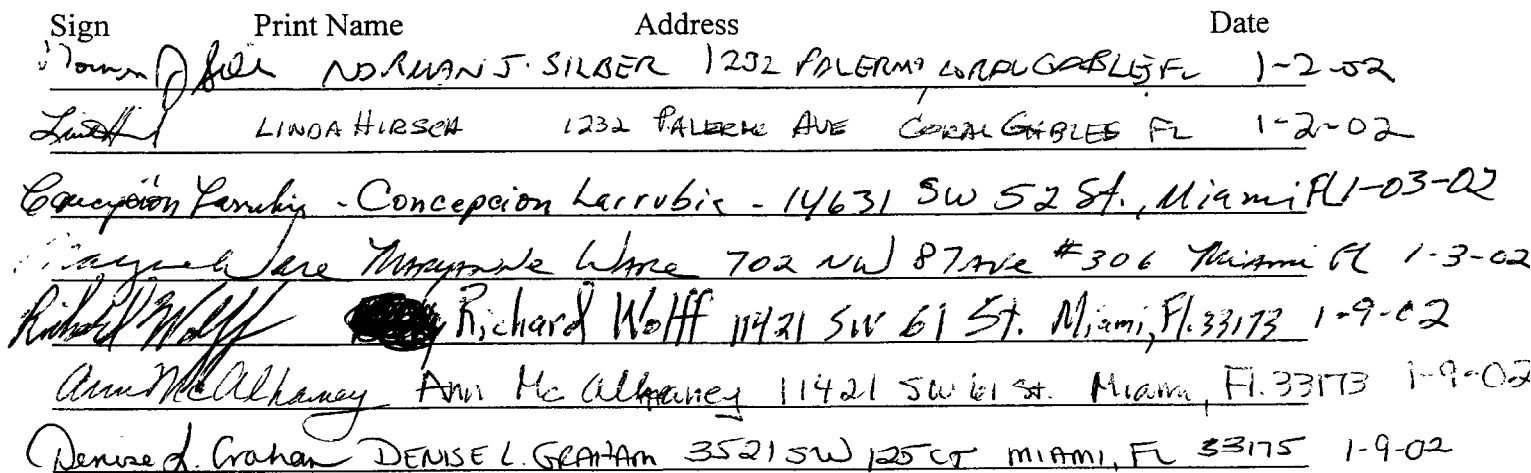 Sign Print Name Address Date
Norman J Silber NORMAN J. SILBER 1232 PALERMO CORAL GABLES FL 1-2-02
LINDA HIRSCH 1232 PALERMO AVE CORAL GABLES FL 1-2-02
Concepcion Larrubia - Concepcion Larrubia - 14631 SW 52 St., Miami Fl 1-03-02
Maryanne Ware MARYANNE WARE 702 NW 87 Ave #306 Miami Fl 1-3-02
Richard Wolff Richard Wolff 11421 SW 61 St. Miami, Fl. 33173 1-9-02
Ann McAlhaney Ann McAlhaney 11421 SW 61 St. Miami, Fl. 33173 1-9-02
Denise L. Graham DENISE L. GRAHAM 3521 SW 125 CT MIAMI, FL 33175 1-9-02